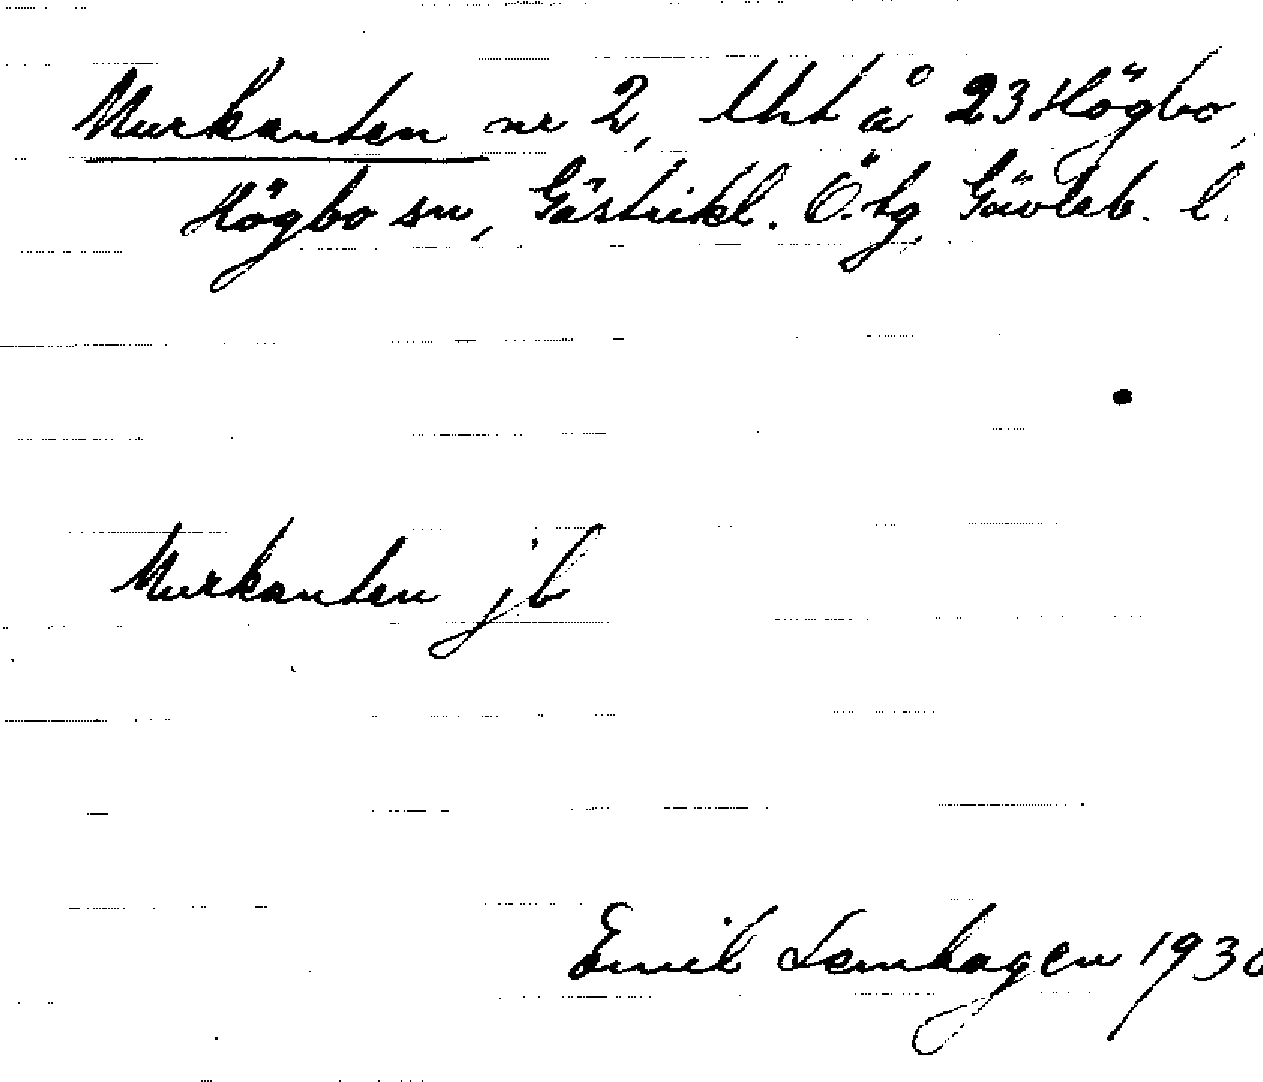 Murkanten nr 2, Uht å 23 Högbo,
Högbo sn, Gästrikl. Ö. tg, Gävleb. l.
Murkanten jb
Emil Lemhagen 1930